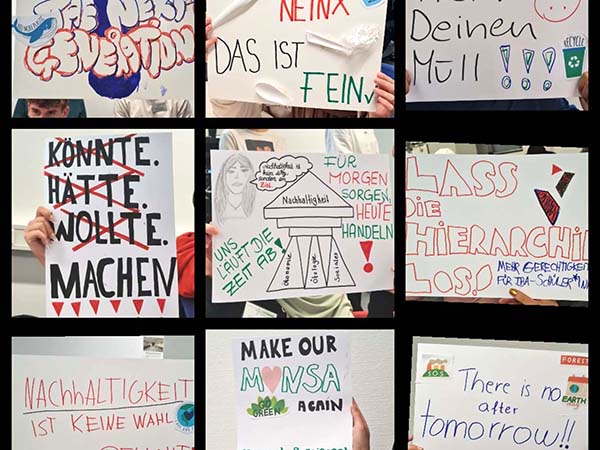 THE NEXT
GENERATION
NEINX
DAS IST
FEIN✓
Deinen
Müll !!!
RECYCLE
KÖNNTE.
HÄTTE.
WOLLTE.
MACHEN
Nachhaltigkeit ist
kein
sondern ein
Ziel.
Nachhaltigkeit
Ökonomie
Ökologie
Soziales
FÜR
MORGEN
SORGEN,
HEUTE
HANDELN
!
UNS
LÄUFT DIE
ZEIT AB!
LASS
DIE
HIERARCHIE
LOS!
MEHR GERECHTIGKEIT
FÜR IBA-SCHÜLER*INN
NACHHALTIGKEIT
IST KEINE WAHL
MAKE OUR
MONSA
GO
GREEN
AGAIN
S.O.S
FOREST
EARTH
There is no
after
tomorrow!!